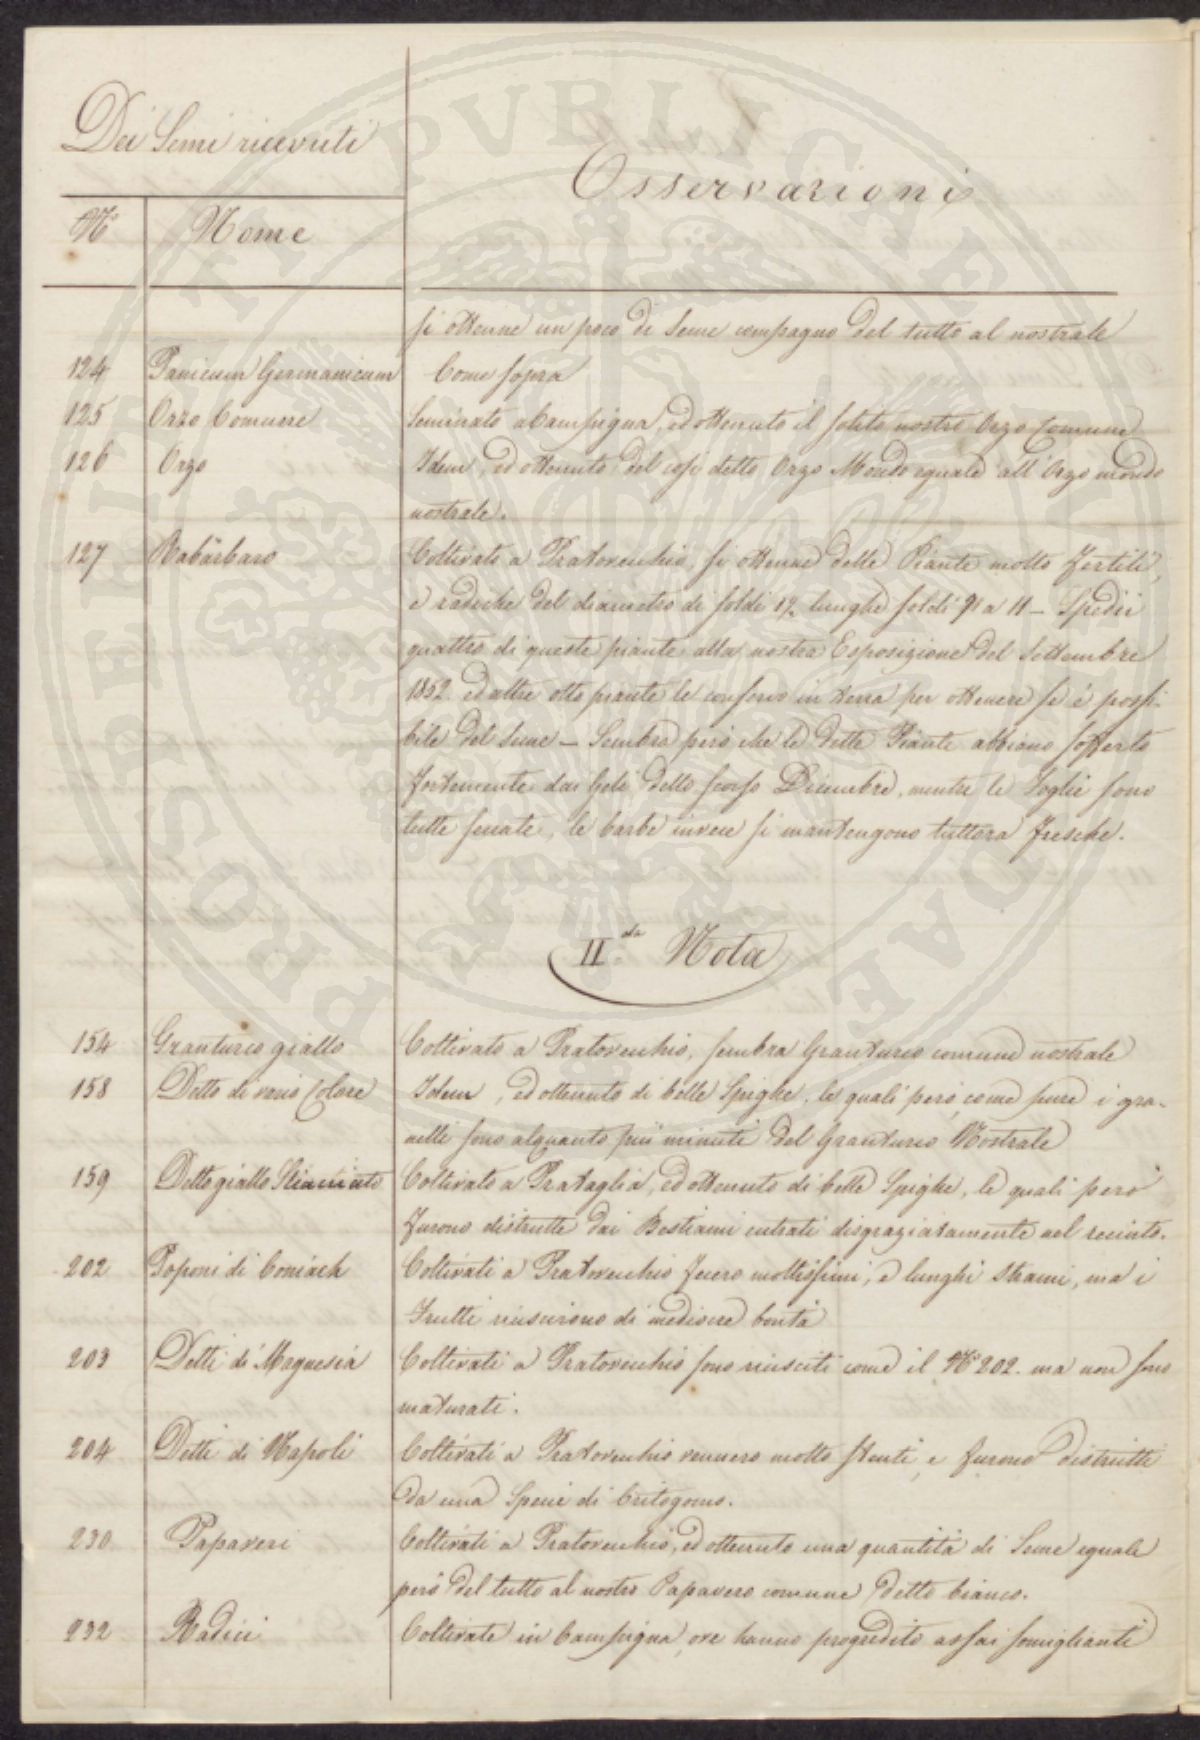 Dei Semi ricevuti
Osservazioni
N°
Nome
si ottenne un poco di Seme compagno del tutto al nostrale
124 Panicum Germanicum Come sopra
125 Orzo Comune Seminato a Campigna, ed ottenuto il solito nostro Orzo Comune
126 Orzo Idem, ed ottenuto del così detto Orzo Mondo eguale all'Orzo mondo
nostrale.
127 Rabàrbaro Coltivato a Pratovecchio, si ottenne delle Piante molto fertili,
e radiche del diametro di soldi 1½ lunghe soldi 9 a 11 — Spedii
quattro di queste piante alla nostra Esposizione del Settembre
1852. ed altre otto piante le conservo in terra per ottenere se è possi-
bile del Seme — Sembra però che le dette Piante abbiano sofferto
fortemente dai geli dello scorso Dicembre, mentre le foglie sono
tutte seccate, le barbe invece si mantengono tuttora fresche.
II.da Nota
154 Granturco giallo Coltivato a Pratovecchio, sembra Granturco comune nostrale
158 Detto di vario Colore Idem, ed ottenuto di belle Spighe, le quali però, come pure i gra-
nelli sono alquanto più minuti del Granturco Nostrale
159 Detto giallo Coltivato a Prataglia, ed ottenuto di belle Spighe, le quali però
furono distrutte dai Bestiami entrati disgraziatamente nel recinto.
202 Poponi di Coniack Coltivati a Pratovecchio fecero moltissimi, e lunghi strami, ma i
Frutti riuscirono di mediocre bontà
203 Detti di Magnesia Coltivati a Pratovecchio sono riusciti come il N° 202. ma non sono
maturati.
204 Detti di Napoli Coltivati a Pratovecchio vennero molto stenti, e furono distrutti
da una Specie di Critogomo.
230 Papaveri Coltivati a Pratovecchio, ed ottenuto una quantità di Seme eguale
però del tutto al nostro Papavero comune detto bianco.
232 Radici Coltivate in Campigna, ove hanno progredito assai somiglianti